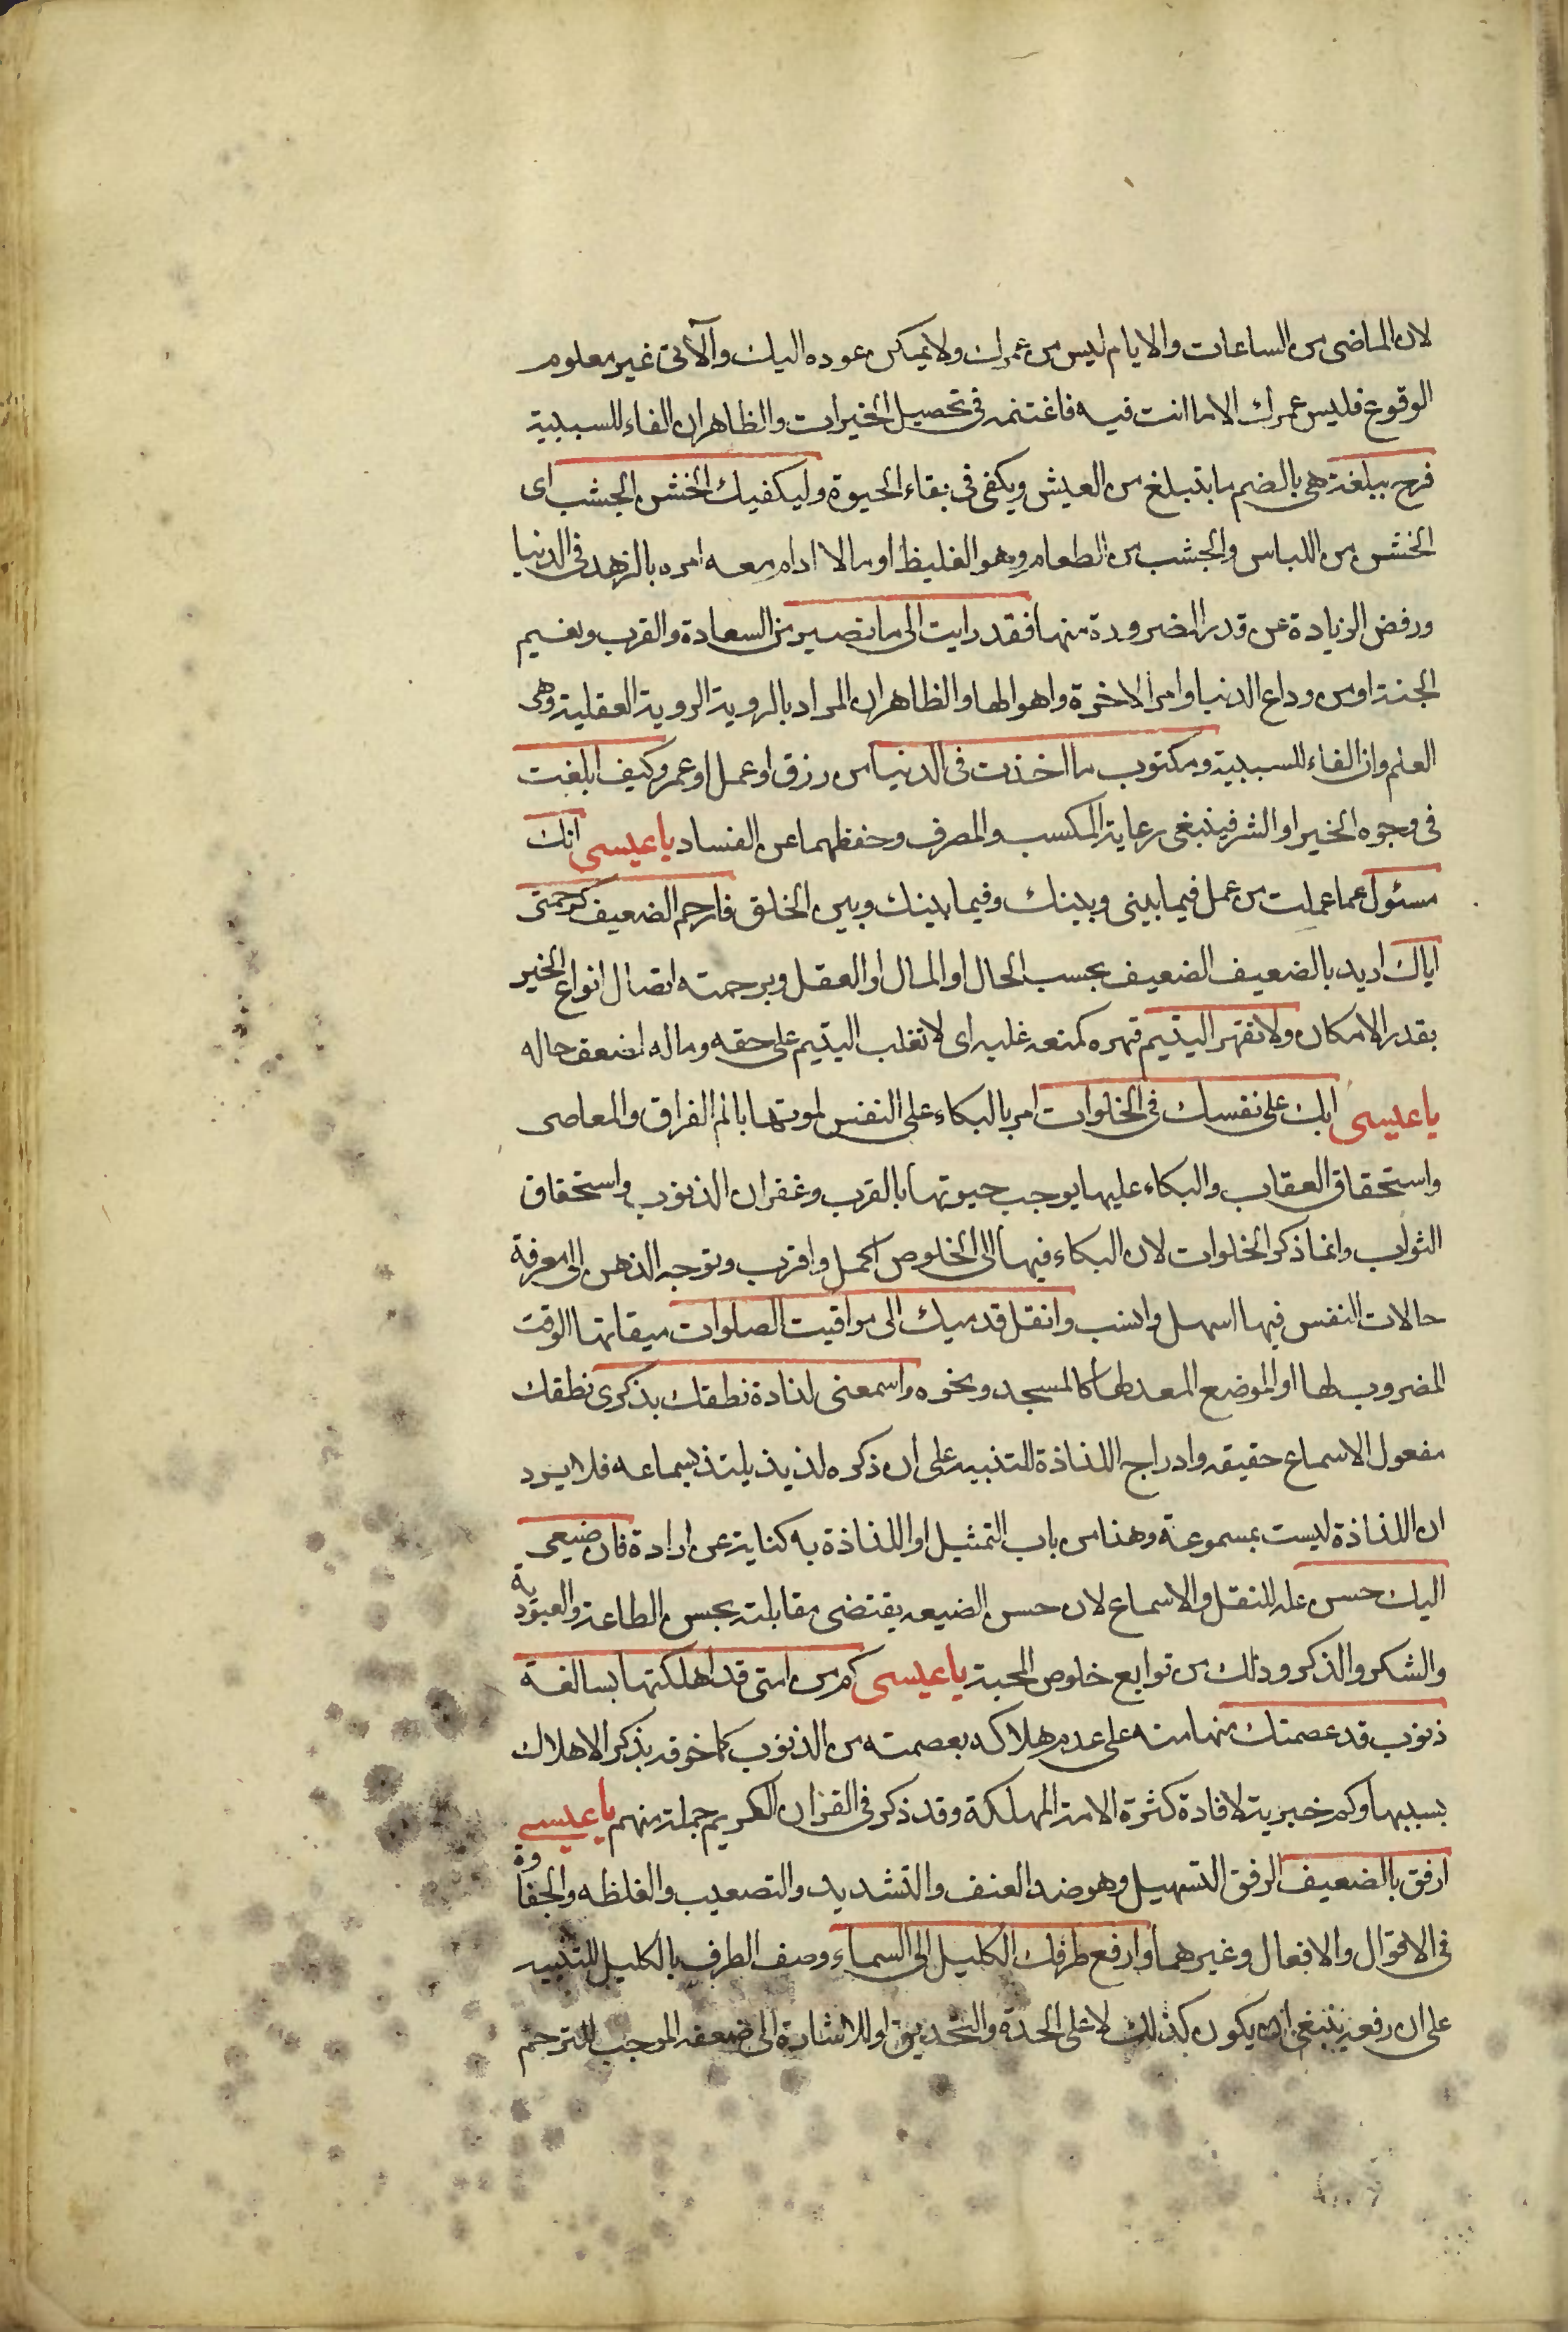 لان الماضى من الساعات والايام ليس من عمرك ولا يمكن عوده اليك والآتى غير معلوم
الوقوع فليس عمرك الا ما انت فيه فاغتنمه فى تحصيل الخيرات والظاهر ان الفاء للسببية
فرح ببلغة هى بالضم ما يتبلغ من العيش ويكفى فى بقاء الحيوة وليكفيك الخشن الجشب اى
الخشن من اللباس والجشب من الطعام وهو الغليظ او ما لا ادام معه امره بالزهد فى الدنيا
ورفض الزيادة عن قدر الضرورة منها فقد رايت الى ما تصير من السعادة والقرب ونعيم
الجنة او من وداع الدنيا وامر الاخرة واهوالها والظاهر ان المراد بالروية الروية العقلية وهى
العلم وان الفاء للسببية ومكتوب ما اخذت فى الدنيا من رزق او عمل او عمر وكيف ابلغت
فى وجوه الخير او الشر فينبغى رعاية المكسب والمصرف وحفظهما عن الفساد يا عيسى انك
مسئول عما عملت من عمل فيما بينى وبينك وفيما بينك وبين الخلق فارحم الضعيف كرحمتى
اياك اريد بالضعيف الضعيف بحسب الحال او المال او العقل وبرحمته ايصال انواع الخير
بقدر الامكان ولا تقهر اليتيم قهره كمنعه غلبه اى لا تغلب اليتيم على حقه وماله لضعف حاله
يا عيسى ابك على نفسك فى الخلوات امر بالبكاء على النفس لموتها بالم الفراق والمعاصى
واستحقاق العقاب والبكاء عليها يوجب حيوتها بالقرب وغفران الذنوب واستحقاق
الثواب وانما ذكر الخلوات لان البكاء فيها الى الخلوص اكمل واقرب وتوجه الذهن الى معرفة
حالات النفس فيها اسهل وانسب وانقل قدميك الى مواقيت الصلوات ميقاتها الوقت
المضروب لها او الموضع المعد لها كالمسجد ونحوه واسمعنى لذاذة نطقك بذكرى نطقك
مفعول الاسماع حقيقه وادراج اللذاذة للتنبيه على ان ذكره لذيذ يلتذ بسماعه فلا يرد
ان اللذاذة ليست بمسموعة وهذا من باب التمثيل او اللذاذة به كناية عن ارادة فان صنيعى
اليك حسن علة للنقل والاسماع لان حسن الصنيعه يقتضى مقابلته بحسن الطاعة والعبودية
والشكر والذكر وذلك من توابع خلوص المحبة يا عيسى كم من امتى قد اهلكتها بسالفة
ذنوب قد عصمتك منها منه على عدم هلاكه بعصمته من الذنوب كما خوفه بذكر الاهلاك
بسببها وكم خبرية لافادة كثرة الامة المهلكة وقد ذكر فى القران الكريم جملة منهم يا عيسى
ارفق بالضعيف الرفق التسهيل وهو ضد العنف والتشديد والتصعيب والغلظه والجفاوة
فى الاقوال والافعال وغيرهما وارفع طرفك الكليل الى السماء وصف الطرف بالكليل للتنبيه
على ان رفعه ينبغى ان يكون كذلك لا على الحدة والتحديق او للاشارة الى ضعفه الموجب للترحم